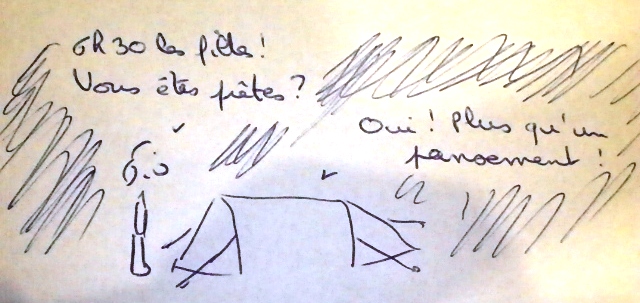 6R30 les filles !
Vous êtes prêtes ?
Oui ! Plus qu'un
pansement !